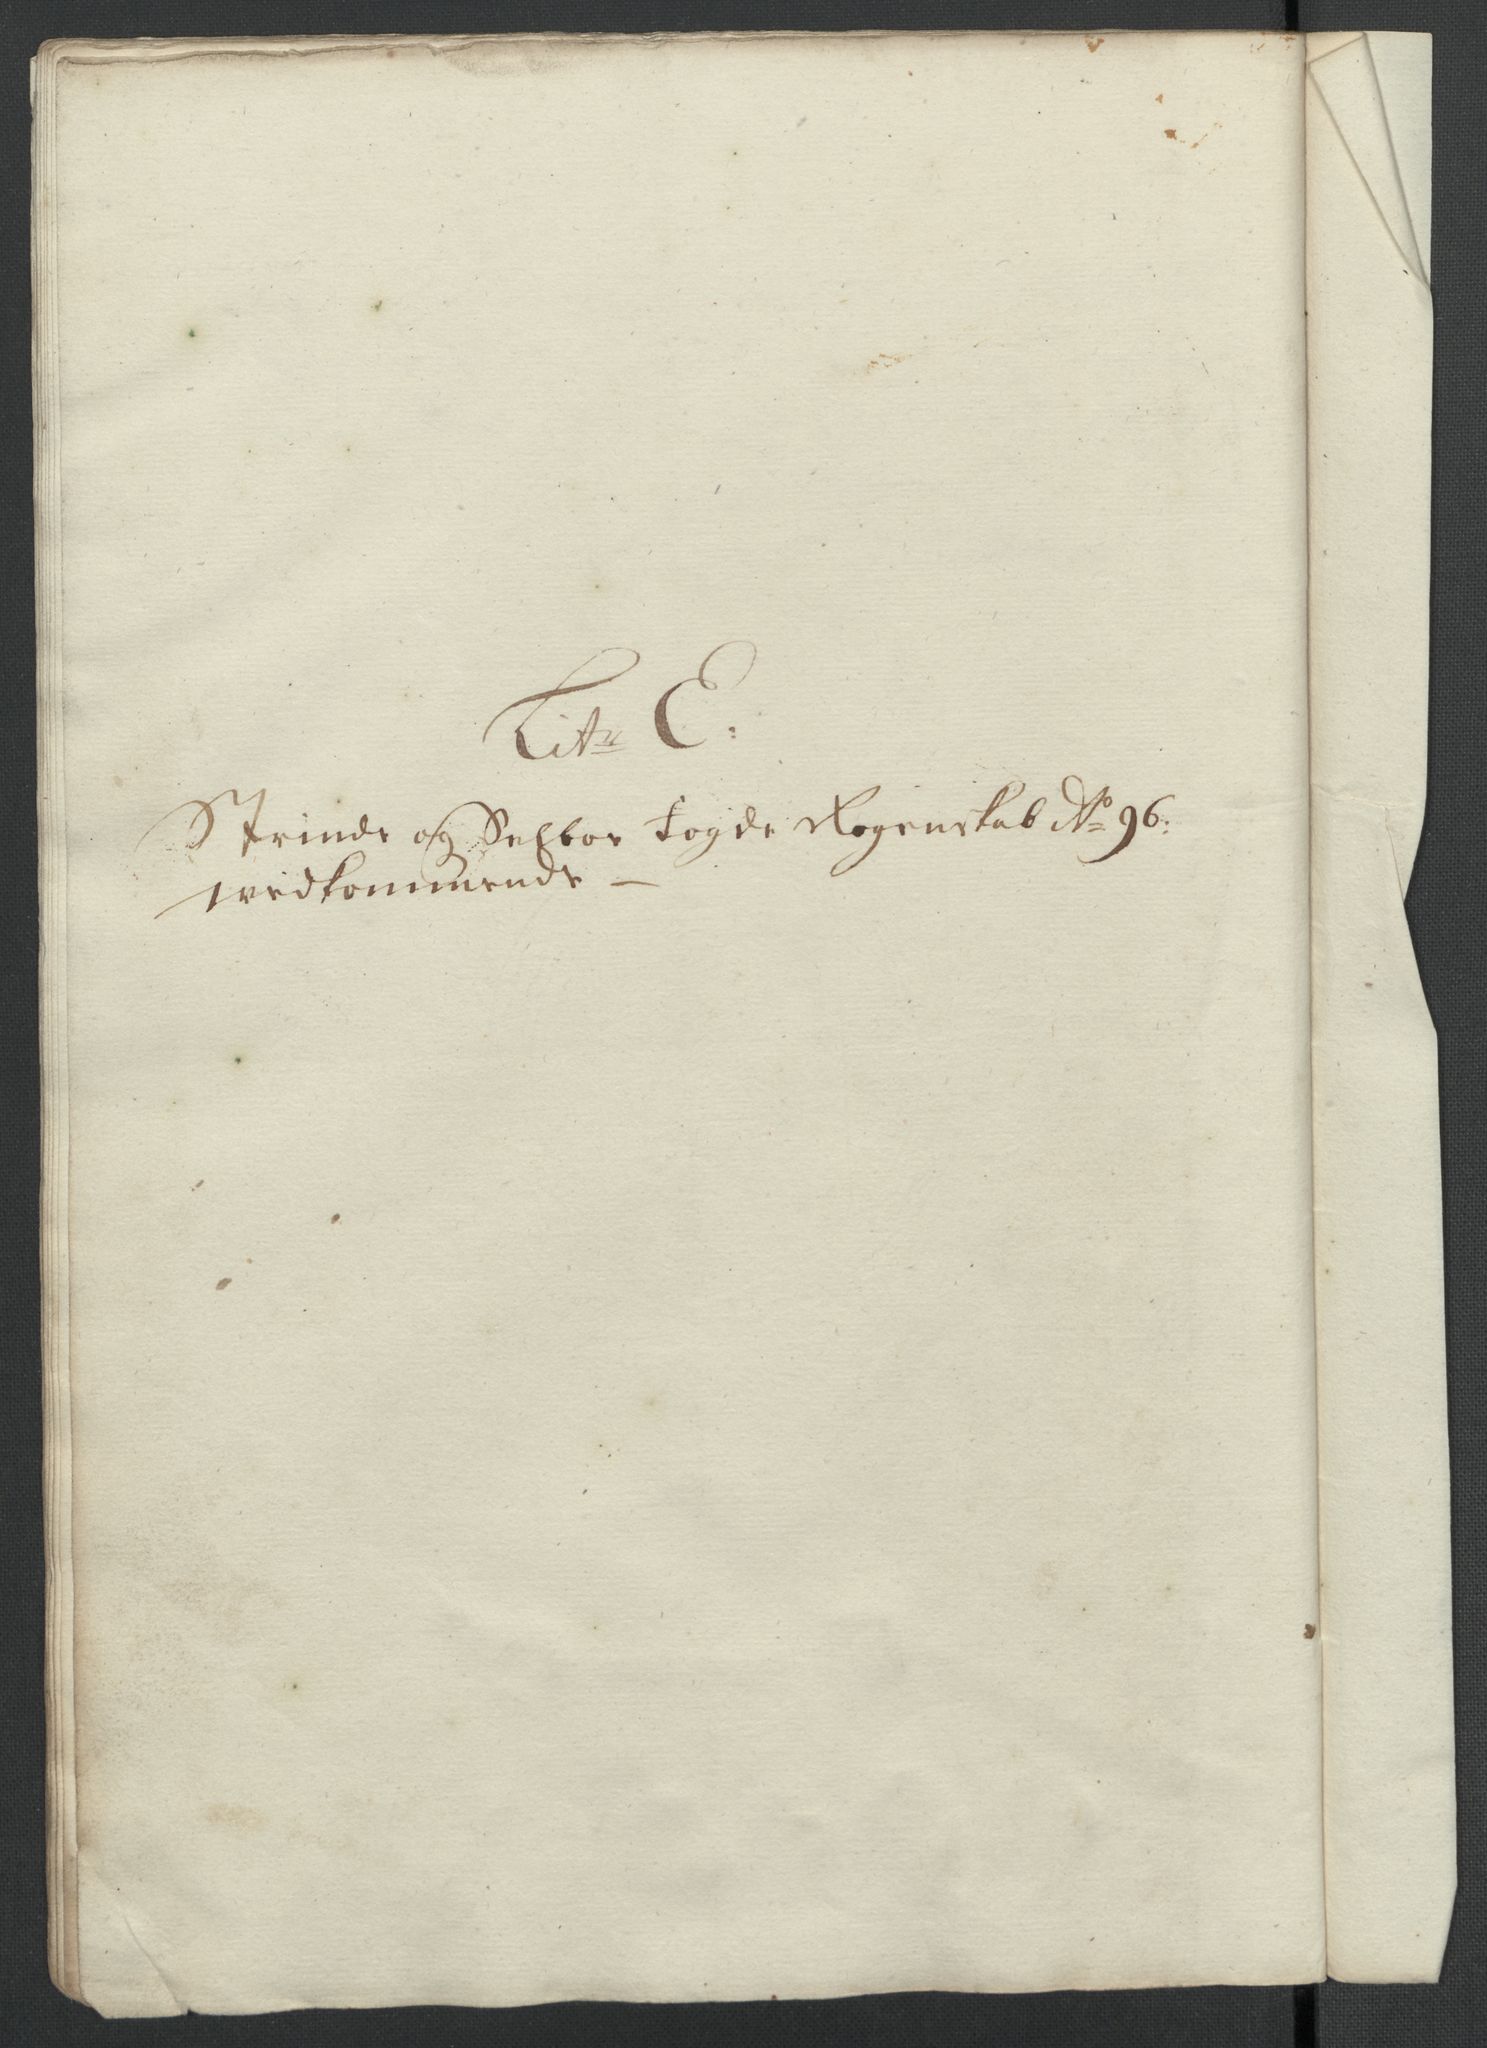 Litr E:
Strinde og Selboe Fogde Regenskab Ao 96:
vedkommende –